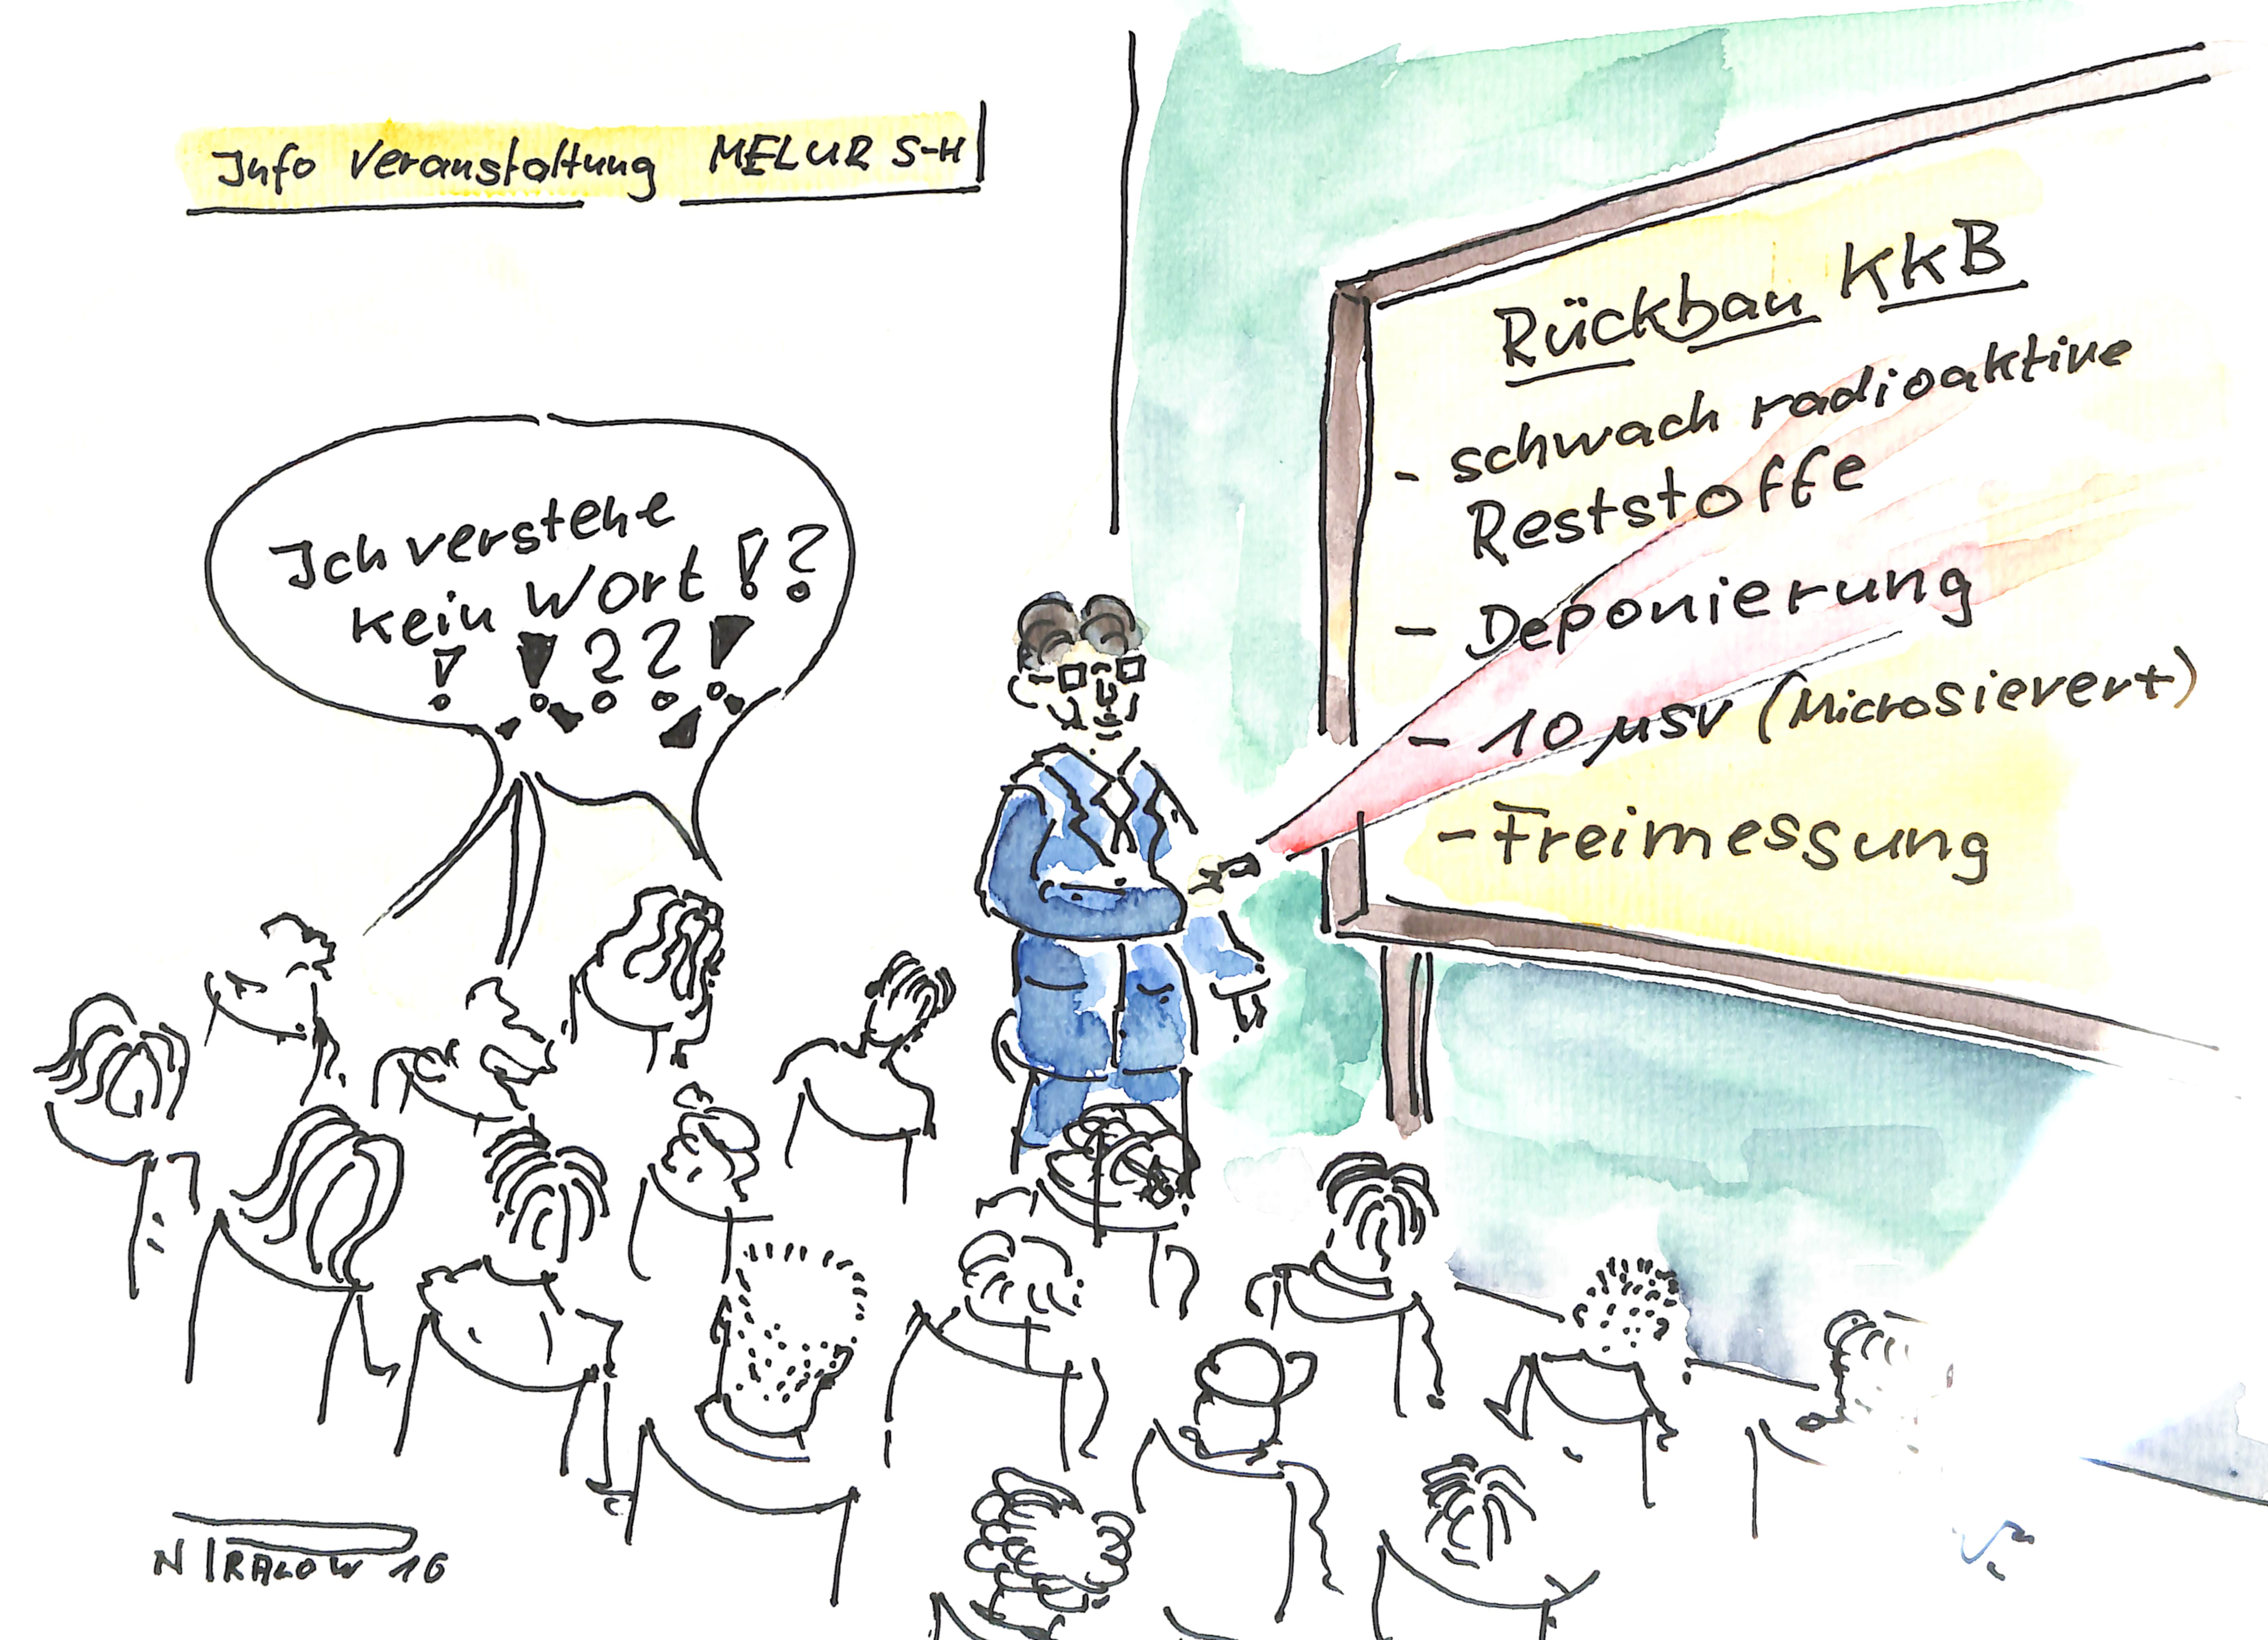 Info Veranstaltung MELUR S-H
Ich verstehe
kein Wort !?
! ! ? ? !
Rückbau KKB
- schwach radioaktive
Reststoffe
- Deponierung
- 10 µSV (Microsievert)
- Freimessung
N IRALOW 16